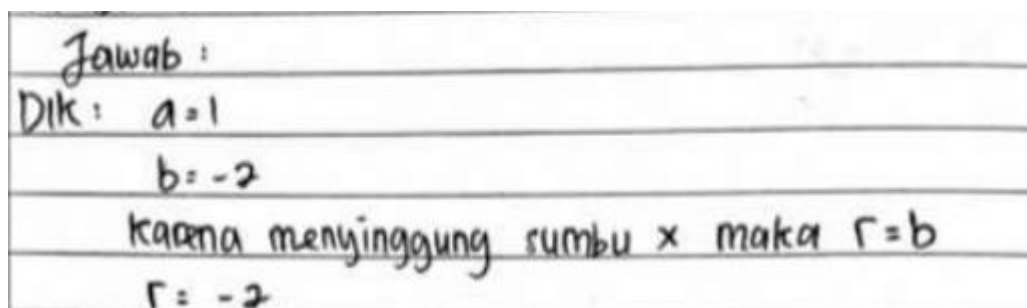 Jawab :
Dik : a = 1
b = -2
karena menyinggung sumbu x maka r = b
r = -2